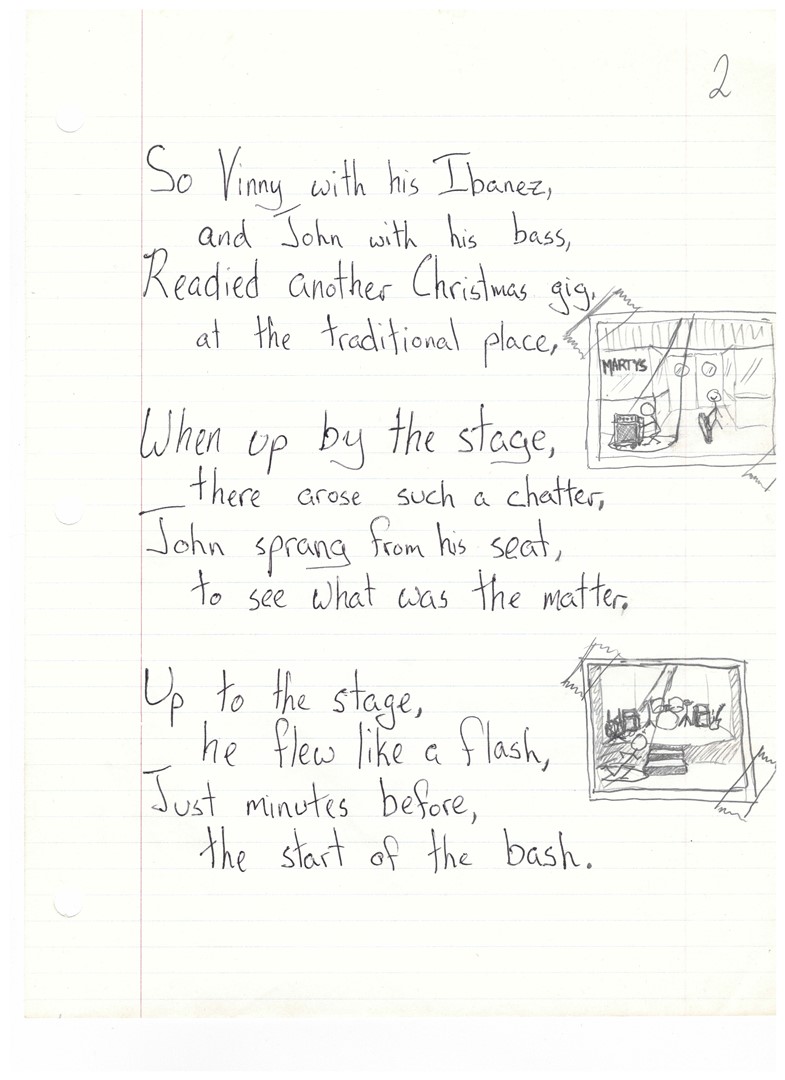 2
So Vinny with his Ibanez,
and John with his bass,
Readied another Christmas gig,
at the traditional place,
MARTYS
When up by the stage,
there arose such a chatter,
John sprang from his seat,
to see what was the matter.
Up to the stage,
he flew like a flash,
Just minutes before,
the start of the bash.